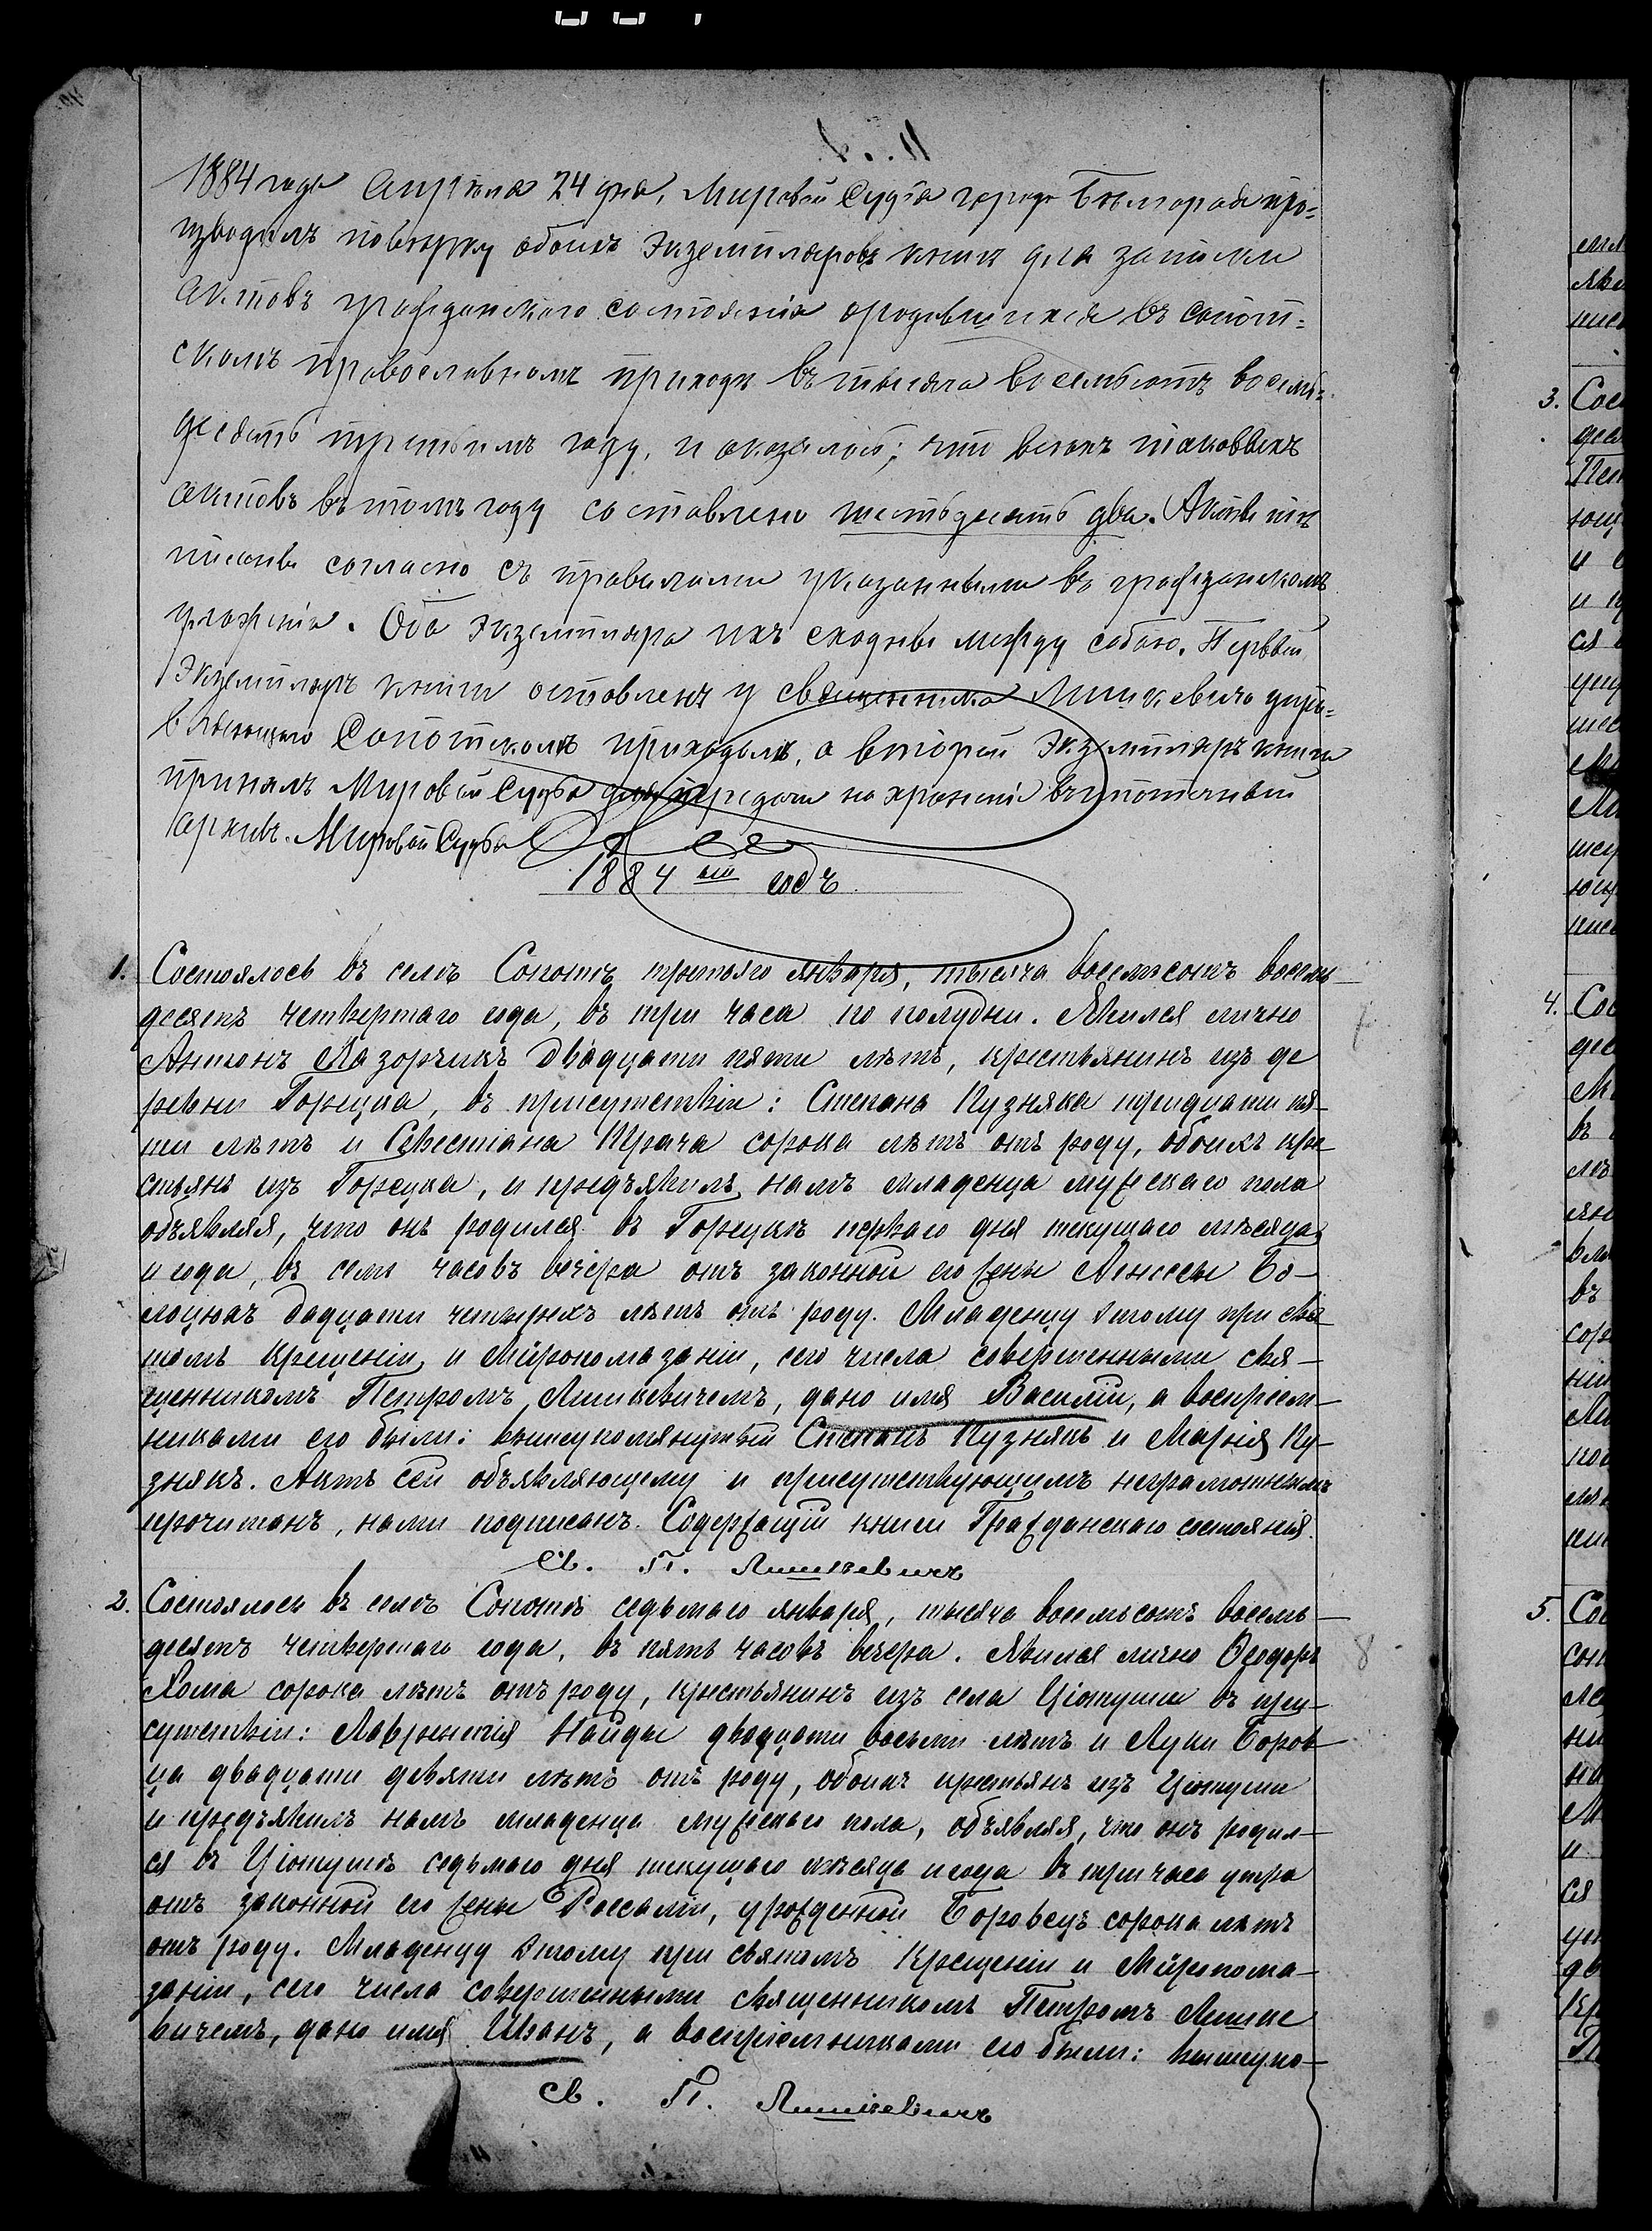 1884 года Апрѣля 24 дня, Мировой Судья города Бѣлгорая про=
изводилъ повѣрку обоихъ экземпляровъ книги для записки
актовъ гражданскаго состоянія о родившихся въ Сопот=
скомъ православномъ приходѣ въ тысяча восемьсотъ восемь=
десятъ третьемъ году, и оказалось, что всѣхъ таковыхъ
актовъ въ томъ году составлено шестьдесятъ два. Акты
писаны согласно съ правилами указанными въ гражданскомъ
уложеніи. Оба экземпляра ихъ сходны между собою. Первый
экземпляръ книги оставленъ у священника Лишкевича упра=
вляющаго Сопотскомъ приходомъ, а второй экземпляръ книги
принялъ Мировой Судья для передачи на храненіе въ ипотечный
архивъ. Мировой Судья
1884 ый годъ
1. Состоялось въ селѣ Сопотѣ третьяго января, тысяча восемьсотъ восемь-
десятъ четвертаго года, въ три часа по полудни. Явился лично
Антонъ Мазорчикъ двадцати пяти лѣтъ, крестьянинъ изъ де
ревни Горецка, въ присутствіи: Степана Кузняка тридцати пя-
ти лѣтъ и Севестіана Крача сорока лѣтъ отъ роду, обоихъ кре-
стьянъ изъ Горецка, и предъявилъ намъ младенца мужескаго пола
объявляя, что онъ родился въ Горецкѣ перваго дня текущаго мѣсяца
и года, въ семь часовъ вечера отъ законной его жены Агнессы Бо-
лоцюхъ дадцати четырехъ лѣтъ отъ роду. Младенцу этому при свя-
томъ Крещеніи и Мѵропомазаніи, сего числа совершенными свя-
щенникомъ Петромъ Лишкевичемъ, дано имя Василій, а воспріем-
никами его были: вышеупомянутый Степанъ Кузнякъ и Марія Ку-
знякъ. Актъ сей объявляющему и присутствующимъ неграмотнымъ
прочитанъ, нами подписанъ. Содержащій книги Гражданскаго состоянія.
Св. П. Лишкевичъ
2. Состоялось въ селѣ Сопотѣ седьмаго января, тысяча восемьсотъ восемь-
десятъ четвертаго года, въ пять часовъ вечера. Явился лично Ѳеодоръ
Кома сорока лѣтъ отъ роду, крестьянинъ изъ села Цѣтуши въ при-
8
сутствіи: Лаврентія Найды двадцати восьми лѣтъ и Луки Боров
ца двадцати девяти лѣтъ отъ роду, обоихъ крестьянъ изъ Цѣтуши
и предъявилъ намъ младенца мужескаго пола, объявляя, что онъ родил-
ся въ Цѣтушѣ седьмаго дня текущаго мѣсяца и года въ три часа утра
отъ законной его жены Россаліи, урожденной Боровецъ сорока лѣтъ
отъ роду. Младенцу этому при святомъ Крещеніи и Мѵропома-
заніи, сего числа совершенными священникомъ Петромъ Лишке
вичемъ, дано имя Иванъ, а воспріемниками его были: вышеупо-
Св. П. Лишкевичъ
3. Сос
4. Сос
5. Сос